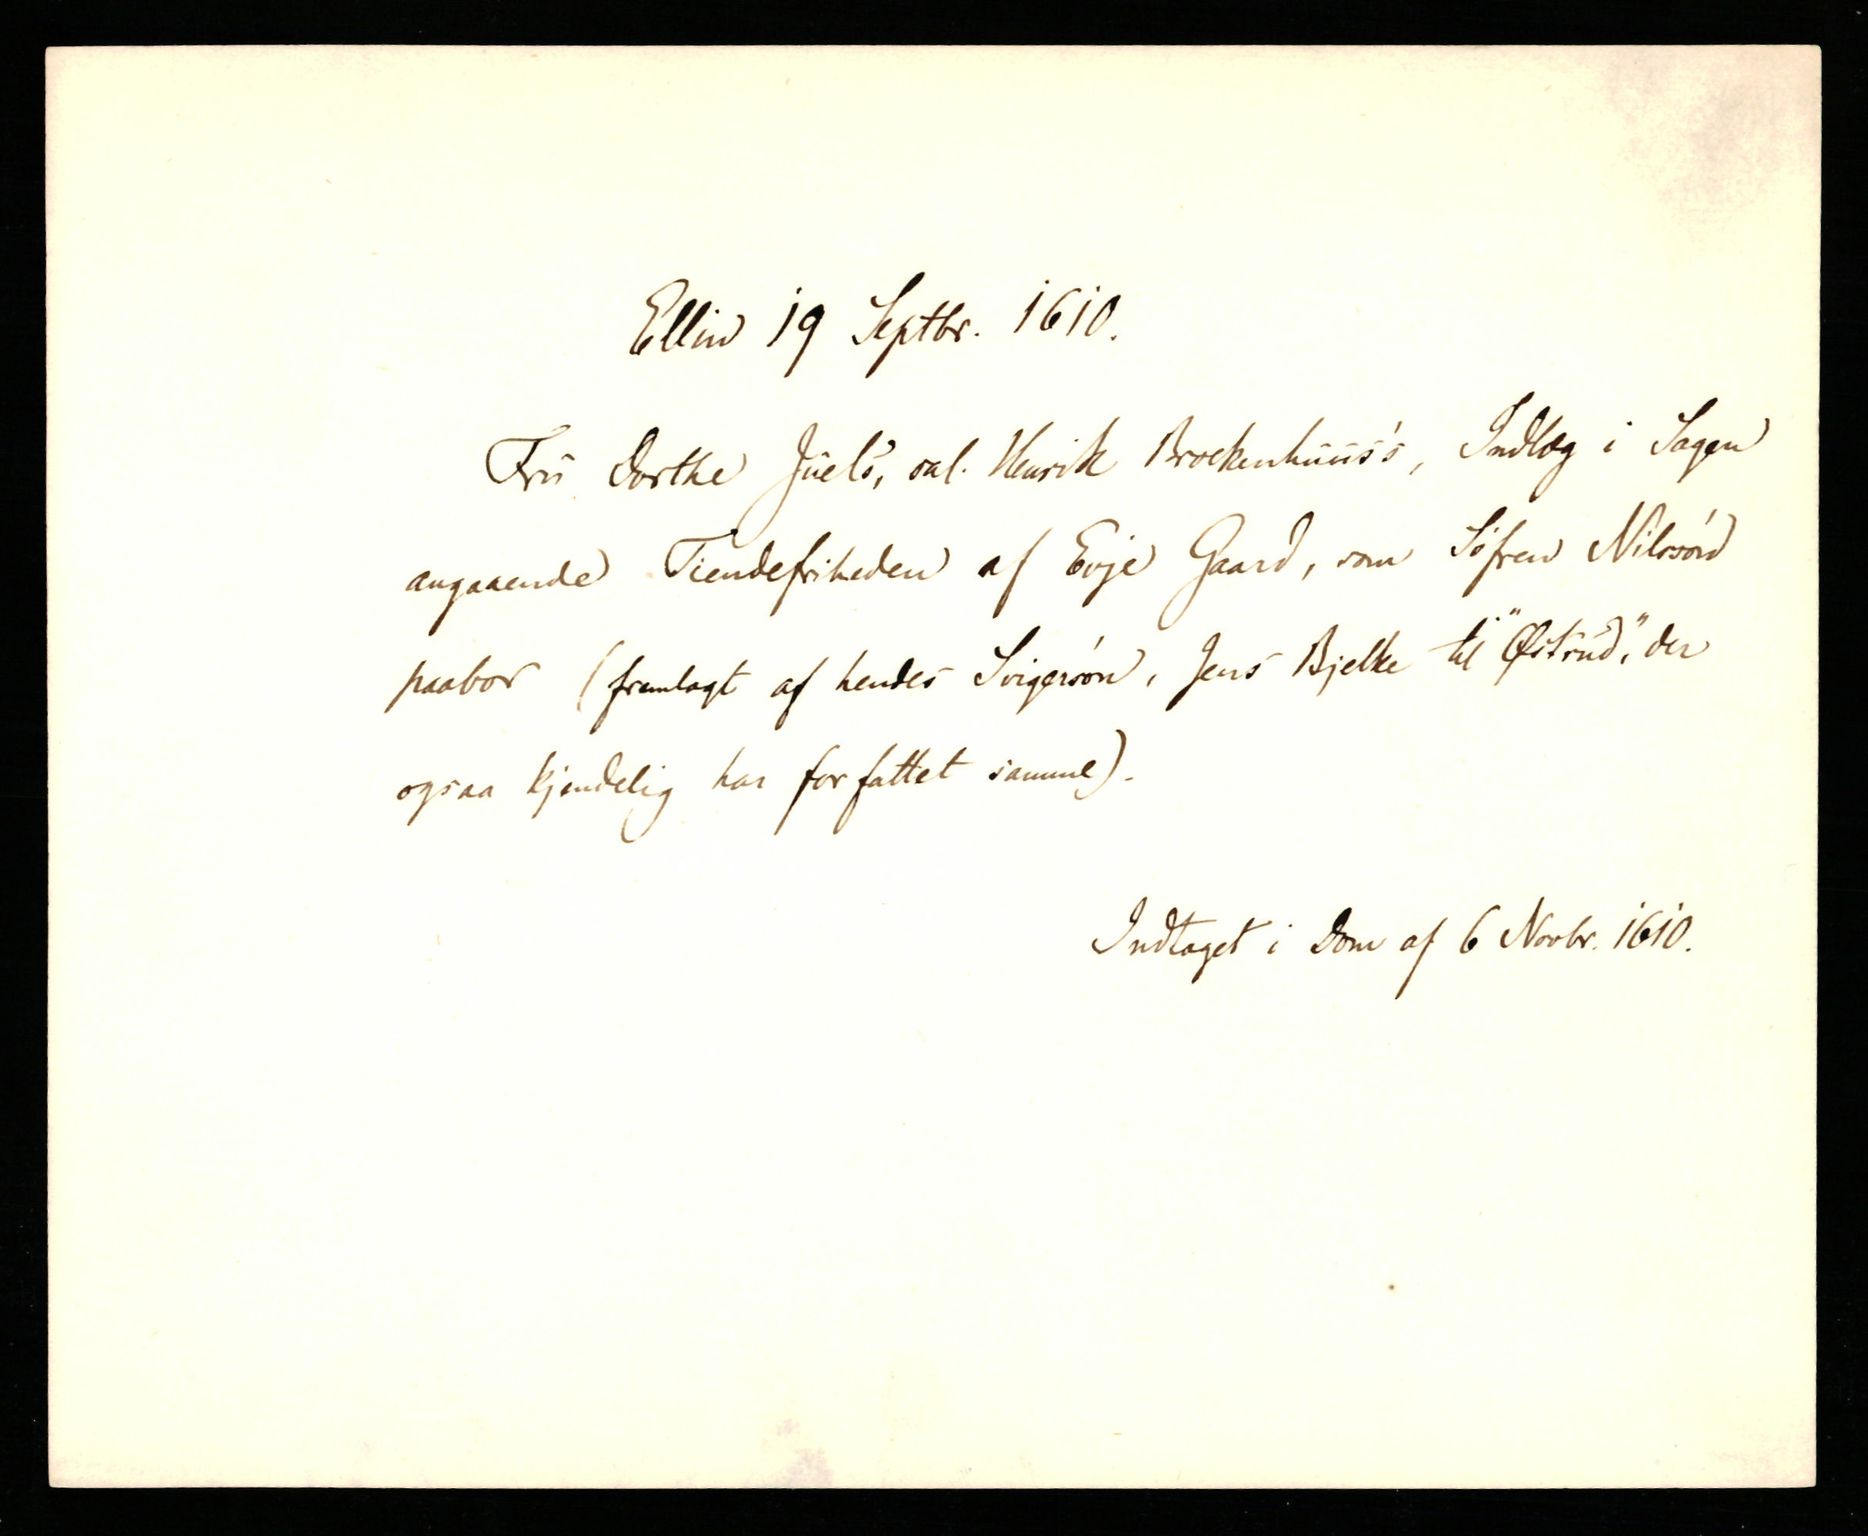 Ellin 19 Septbr. 1610.
Fru Dorthe Juels, sal. Henrik Brockenhuus's, Indlæg i Sagen
angaaende Tiendefriheden af Evje Gaard, som Söfren Nilssön
paabor (fremlagt af hendes Svigersön, Jens Bjelke til "Östrud," der
ogsaa kjendelig har forfattet samme).
Indtaget i Dom af 6 Novbr. 1610.